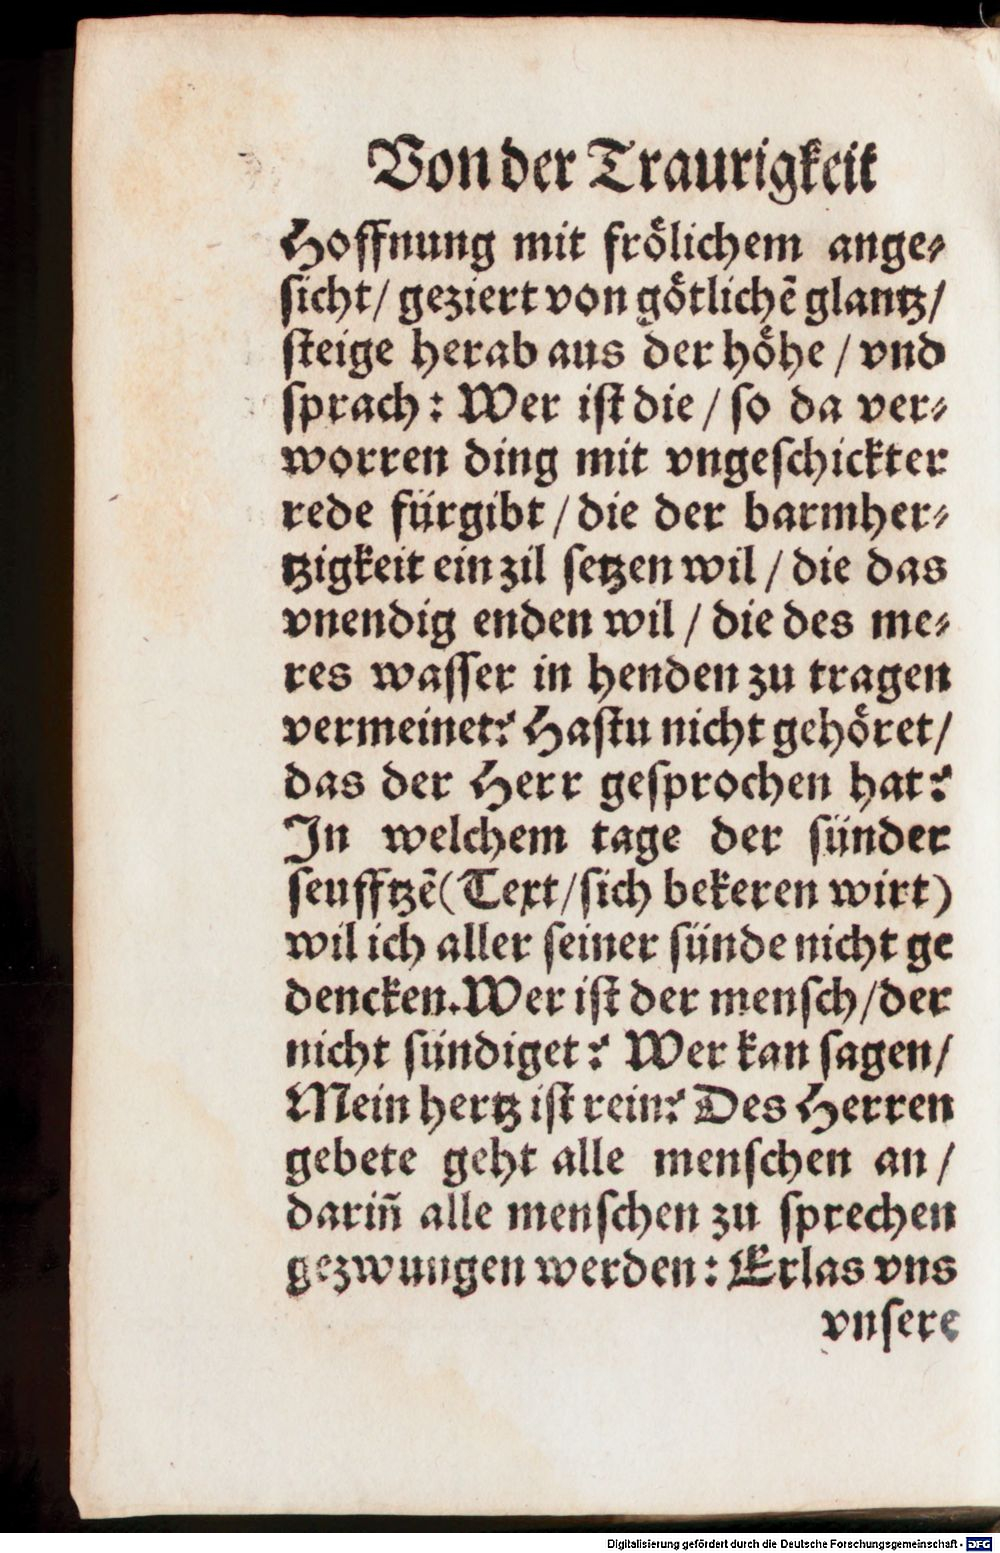 Von der Traurigkeit
Hoffnung mit frölichem ange⸗
ſicht/ geziert von götlichẽ glantz/
ſteige herab aus der höhe / vnd
ſprach: Wer iſt die / ſo da ver⸗
worren ding mit vngeſchickter
rede fürgibt / die der barmher⸗
tzigkeit ein zil ſetzen wil / die das
vnendig enden wil / die des me⸗
res waſſer in henden zu tragen
vermeinet? Haſtu nicht gehöret/
das der Herr geſprochen hat?
In welchem tage der ſünder
ſeufftzẽ (Text/ ſich bekeren wirt)
wil ich aller ſeiner ſünde nicht ge
dencken. Wer iſt der menſch/ der
nicht ſündiget? Wer kan ſagen/
Mein hertz iſt rein? Des Herren
gebete geht alle menſchen an /
dariñ alle menſchen zu ſprechen
gezwungen werden: Erlas vns
vnſere
Digitalisierung gefördert durch die Deutsche Forschungsgemeinschaft - DFG